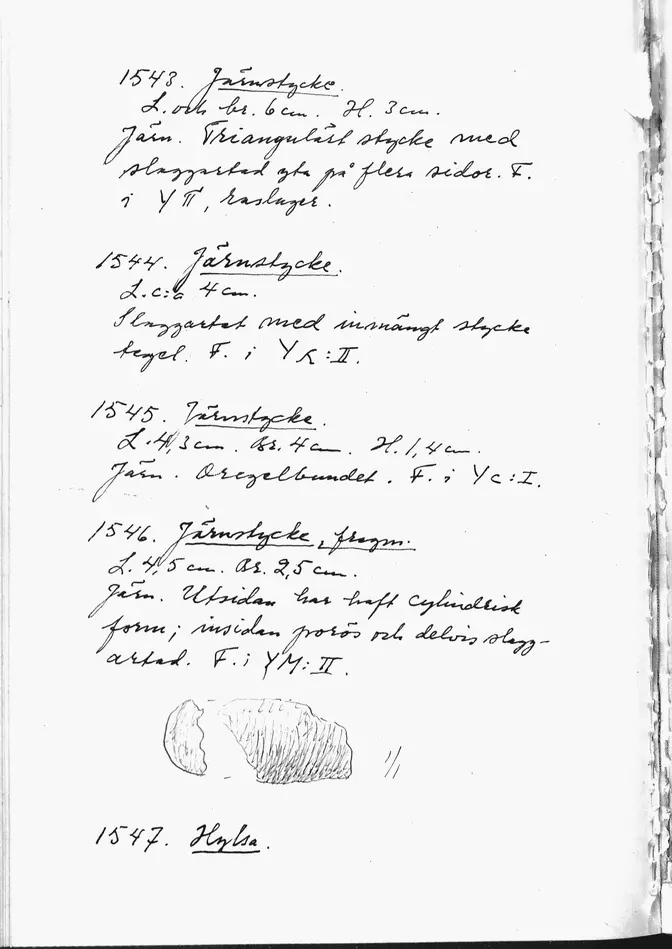 1543. Järnstycke.
L. och br. 6 cm. H. 3 cm.
Järn. Triangulärt stycke med
slaggartad yta på flera sidor. F.
i Y II, raslager.
1544. Järnstycke.
L. c:a 4 cm.
Slaggartat med inmängt stycke
tegel. F. i Y :II.
1545. Järnstycke.
L. 4,3 cm. Br. 4 cm. H. 1,4 cm.
Järn. Oregelbundet. F. i Yc:I.
1546. Järnstycke, fragm.
L. 4,5 cm. Br. 2,5 cm.
Järn. Utsidan har haft cylindrisk
form; insidan porös och delvis slagg-
artad. F. i YM:II.
1/1
1547. Hylsa.